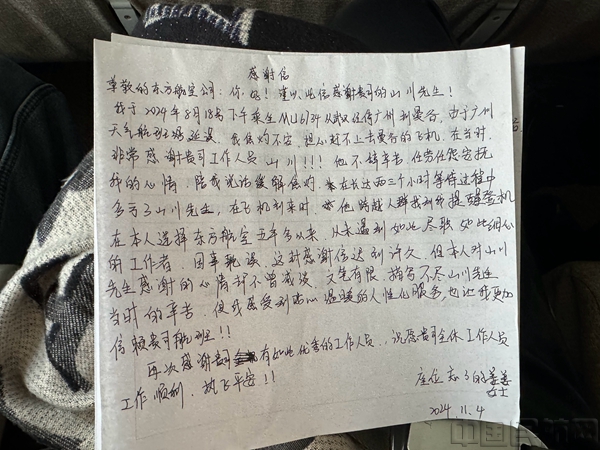 感谢信
尊敬的东方航空公司：你好！谨以此信感谢贵司的山川先生！
我于2024年8月18号下午乘坐MU6134从武汉经停广州到曼谷，由于广州
天气航班延误，我焦灼不安，担心赶不上去曼谷的飞机，在当时
非常感谢贵司工作人员山川！！！他不辞辛苦、任劳任怨安抚
我的心情，陪我说话缓解焦灼，在长达两三个小时等待过程中
多亏了山川先生，在飞机到来时，他跨越人群找到我提醒登机
在本人选择东方航空五年多以来，从未遇到如此尽职 如此细心
的工作者，因事耽误，这封感谢信迟到许久，但本人对山川
先生感谢的心情却不曾减淡，文笔有限，描写不尽山川先生
当时的辛苦，使我感受到贴心 温暖的人性化服务，也让我更加
信赖贵司航班！！
再次感谢贵司有如此优秀的工作人员，祝愿贵司全体工作人员
工作顺利，执飞平安！！
座位忘了的姜
女士
2024.11.4
中国民航网